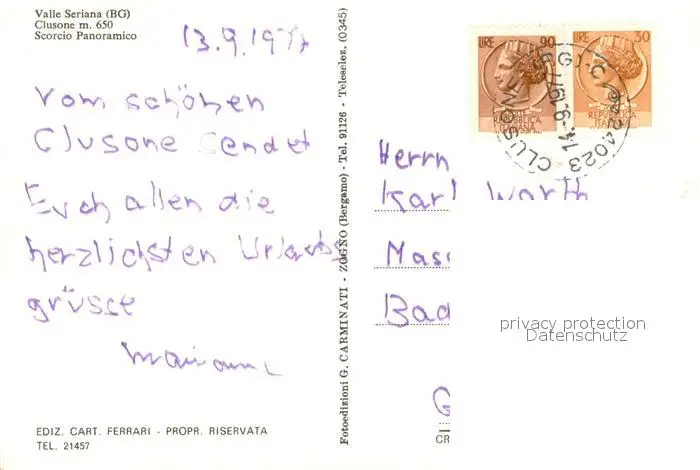 Valle Seriana (BG)
Clusone m. 650
Scorcio Panoramico
13.9.1977
Vom schönen
Clusone sendet
Euch allen die
herzlichsten Urlaubs
grüsse
Marianne
EDIZ. CART. FERRARI - PROPR. RISERVATA
TEL. 21457
Fotoedizioni G. CARMINATI - ZOGNO (Bergamo) - Tel. 91126 - Teleselez. (0345)
LIRE 90
REPVBBLICA
ITALIANA
LIRE 30
REPVBBLICA
ITALIANA
24023 CLUSONE (BG)
Herrn
Karl
Bad
G
CR
privacy protection
Datenschutz